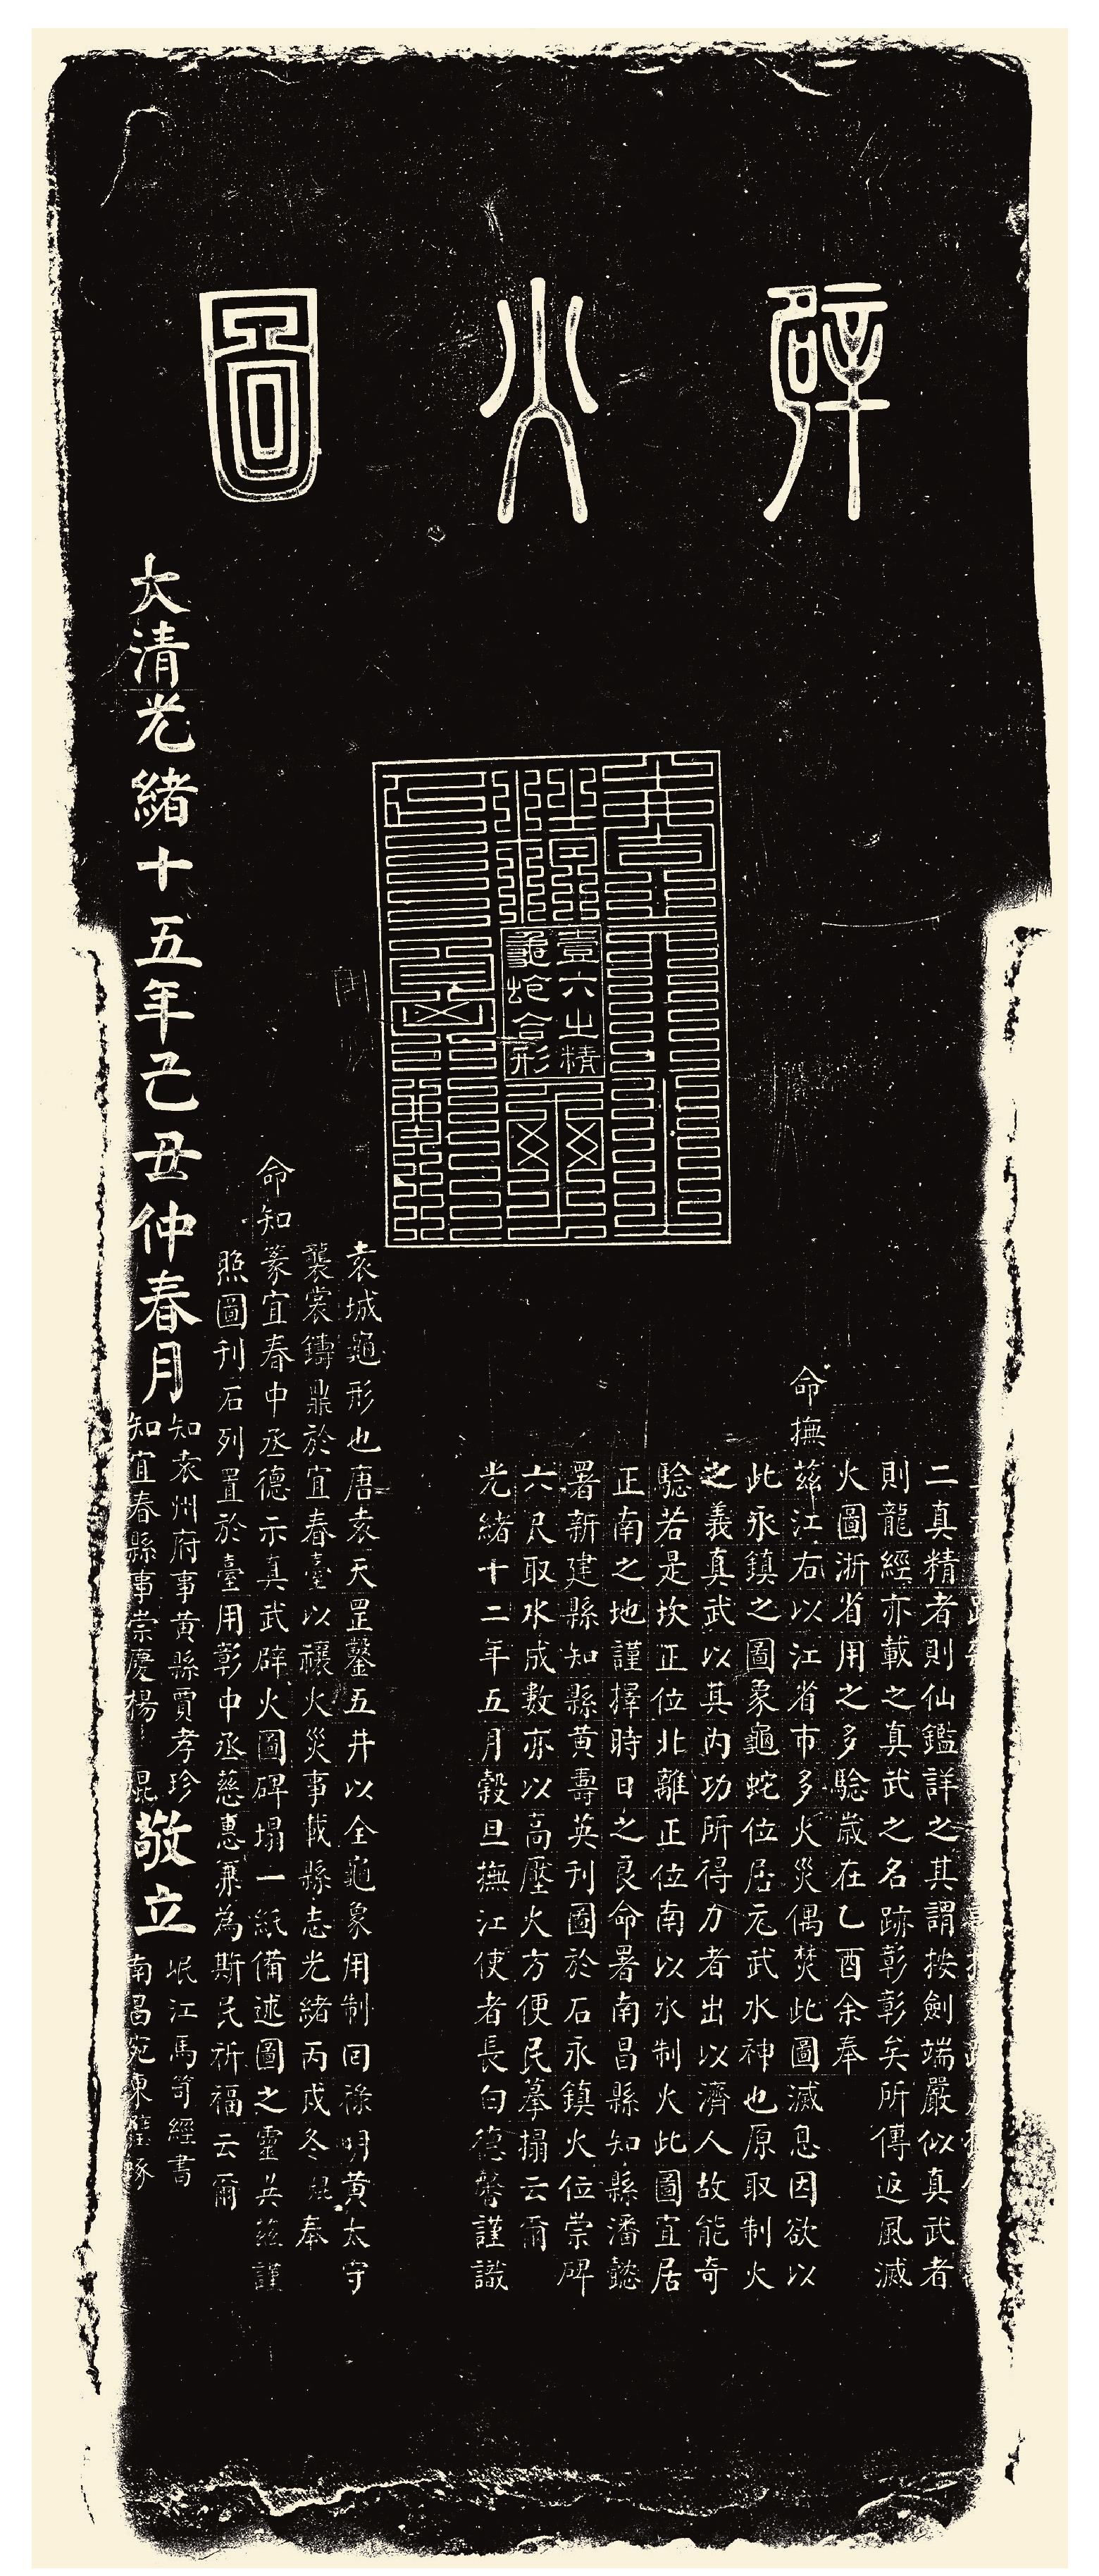 辟火圖
二真精者則仙鑑詳之其謂按劍端嚴似真武者
則龍經亦載之真武之名跡彰彰矣所傳返風滅
火圖浙省用之多驗歲在乙酉余奉
命撫
茲江右以江省市多火災偶焚此圖滅息因欲以
此永鎮之圖象龜蛇位居元武水神也原取制火
之義真武以其內功所得力者出以濟人故能奇
驗若是坎正位北離正位南以水制火此圖宜居
正南之地謹擇時日之良命署南昌縣知縣潘懿
署新建縣知縣黃壽英刊圖於石永鎮火位崇碑
六尺取水成數亦以高壓火方便民摹搨云爾
光緒十二年五月穀旦撫江使者長白德馨謹識
壹六之精
龜蛇合形
袁城龜形也唐袁天罡鑿五井以全龜象用制回祿明黃太守
襲裳鑄鼎於宜春臺以禳火災事載縣志光緒丙戌冬焜奉
命知
篆宜春中丞德示真武辟火圖碑搨一紙備述圖之靈異茲謹
照圖刊石列置於臺用彰中丞慈惠兼為斯民祈福云爾
大清光緒十五年己丑仲春月
知袁州府事黃縣賈孝珍
知宜春縣事崇慶楊焜
敬立
岷江馬荀經書
南昌宛東璧